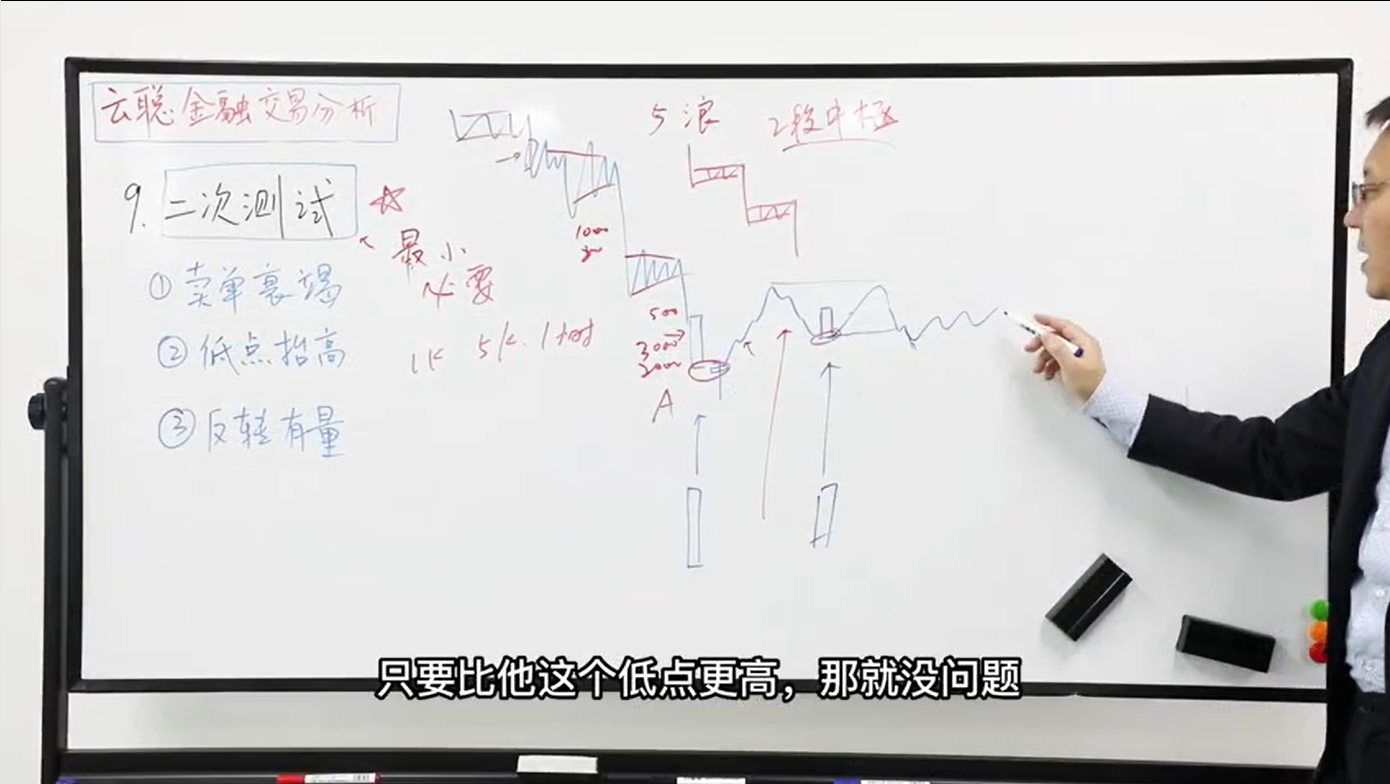 云聪金融交易分析
9. 二次测试
最小
必要
①卖单衰竭
②低点抬高
③反转有量
1K 5K. 1小时
5浪 2段中枢
1000
500
300
2000
A
只要比他这个低点更高，那就没问题